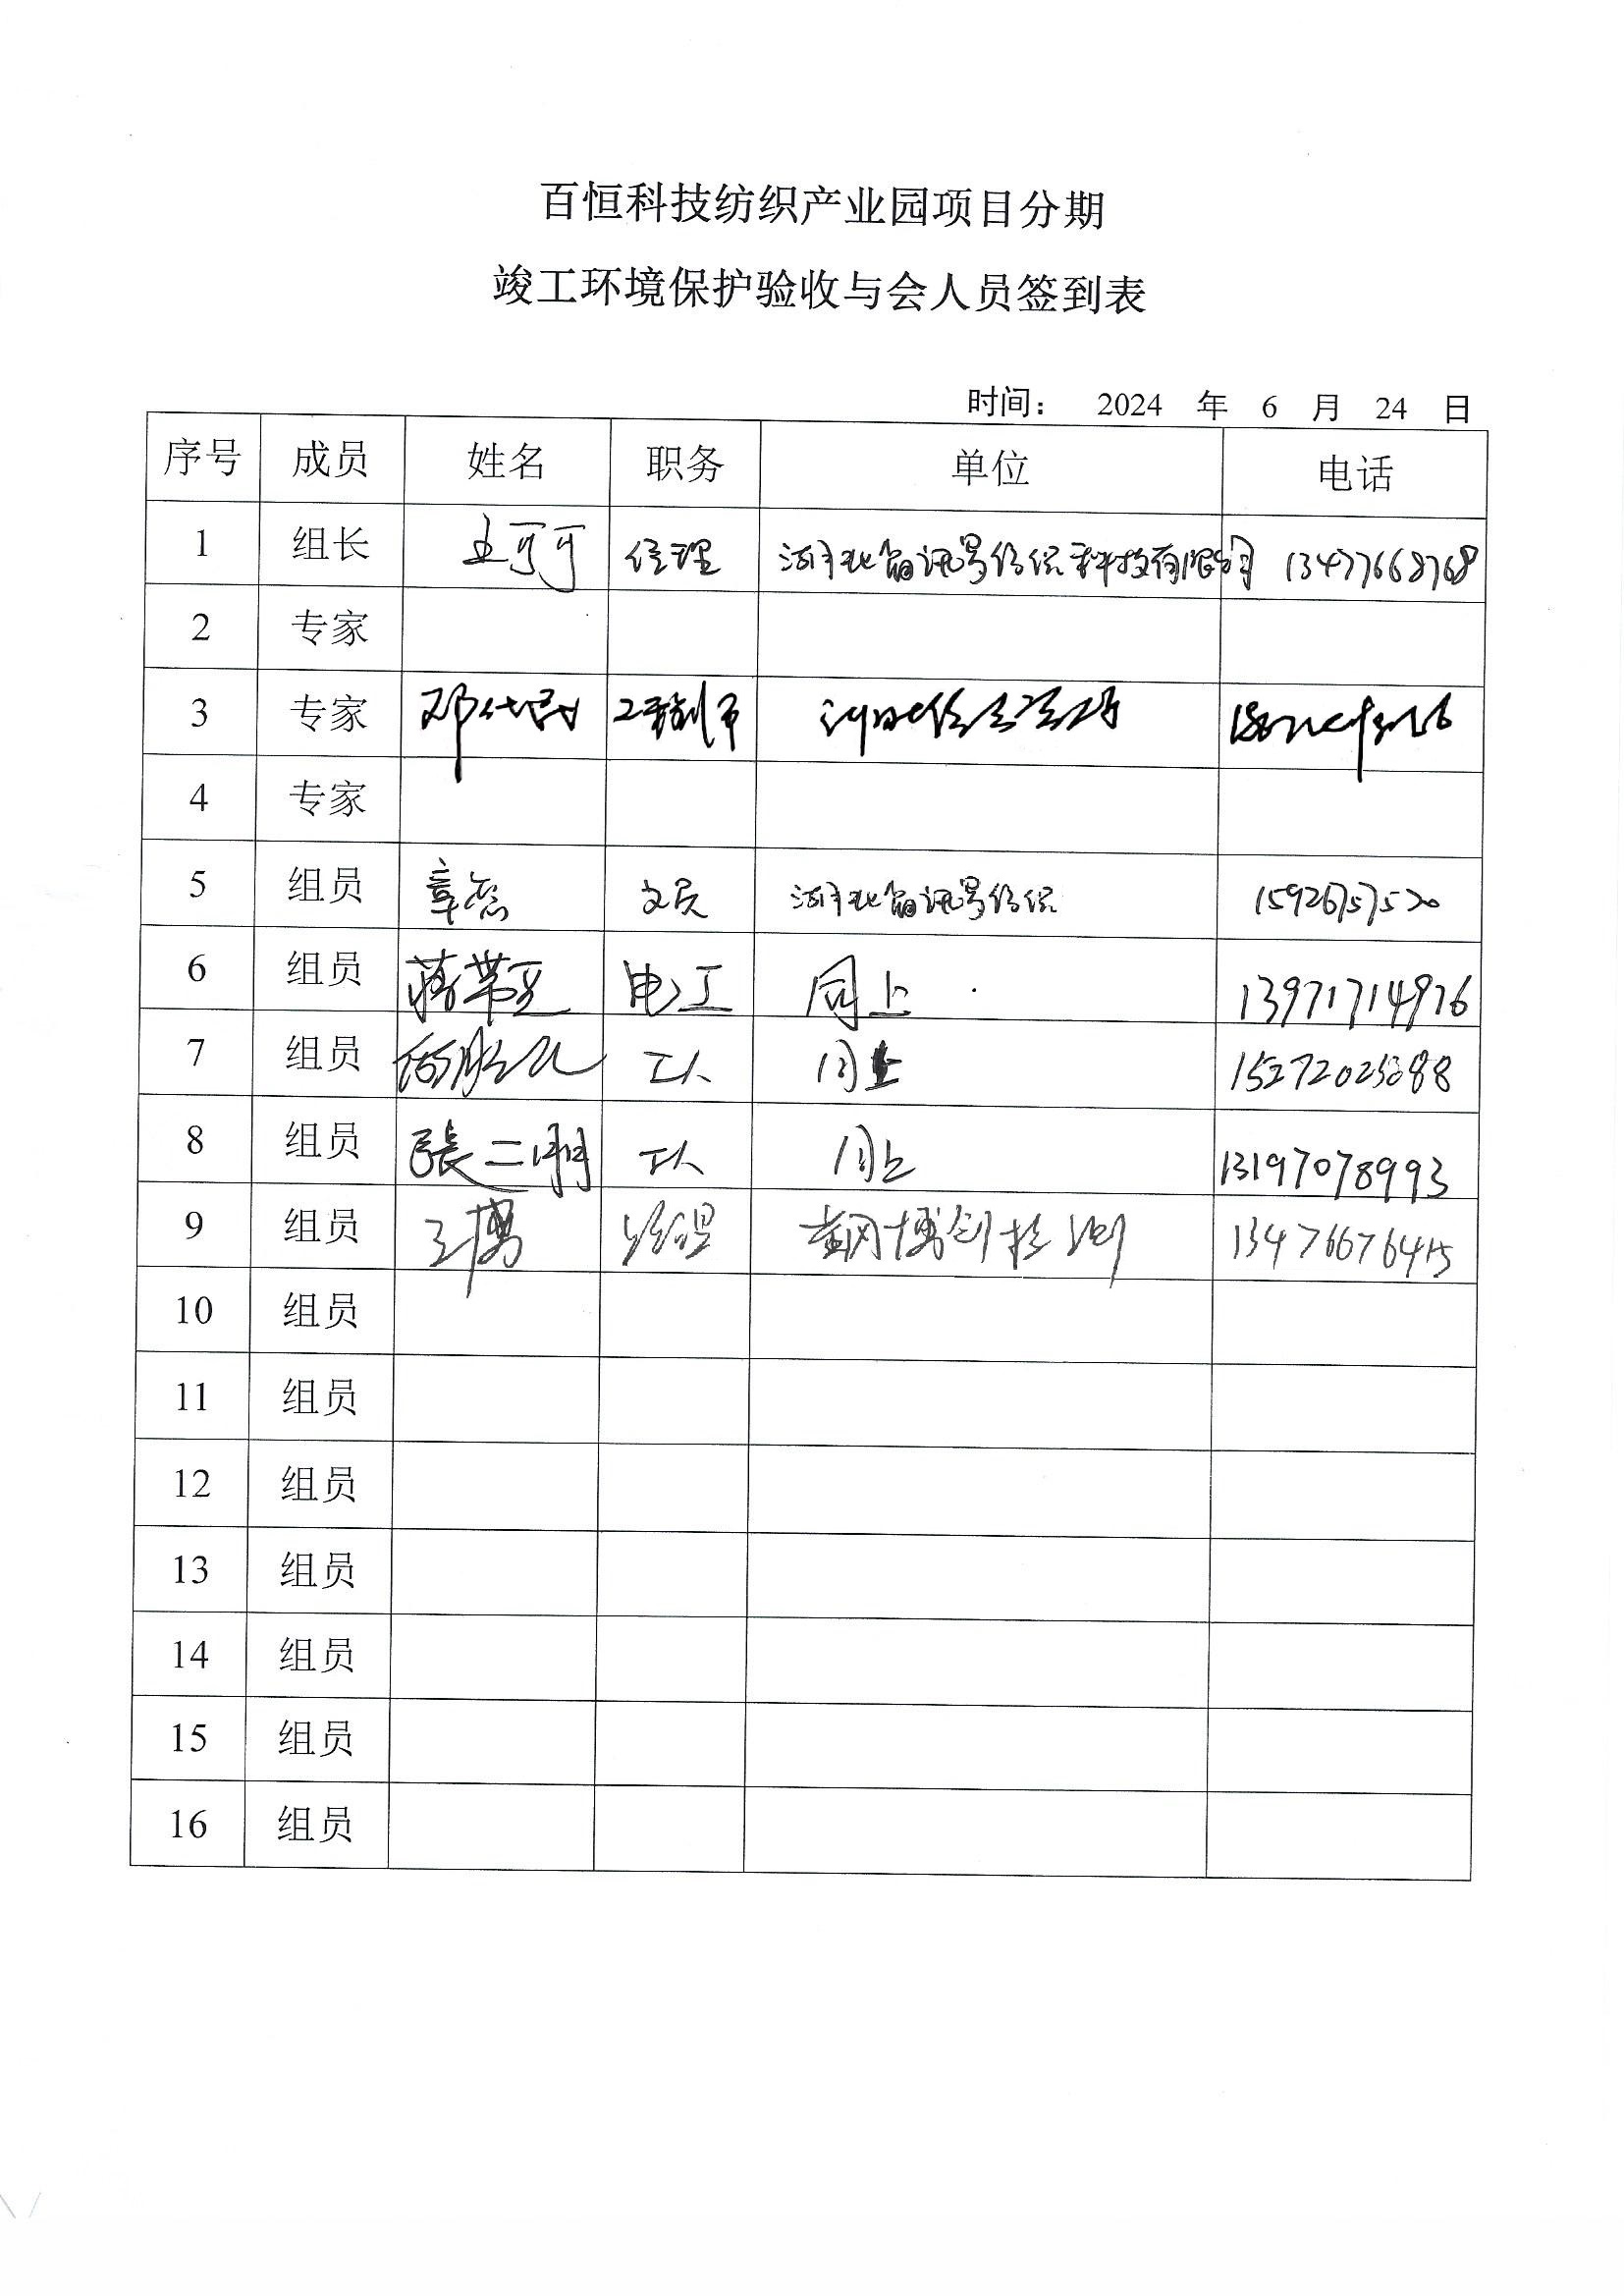 百恒科技纺织产业园项目分期
竣工环境保护验收与会人员签到表
时间： 2024 年 6 月 24 日
序号 成员 姓名 职务 单位 电话
1 组长 王可可 经理 湖北省讯号纺织科技有限公司 13477668768
2 专家
3 专家 邓代 工程师
4 专家
5 组员 章 文员 湖北省讯号纺织 15926757520
6 组员 蒋带 电工 同上 13971714976
7 组员 工人 同上 15272025288
8 组员 張二 工人 同上 13197078993
9 组员 王博 经理 黄冈博创检测 13476676415
10 组员
11 组员
12 组员
13 组员
14 组员
15 组员
16 组员